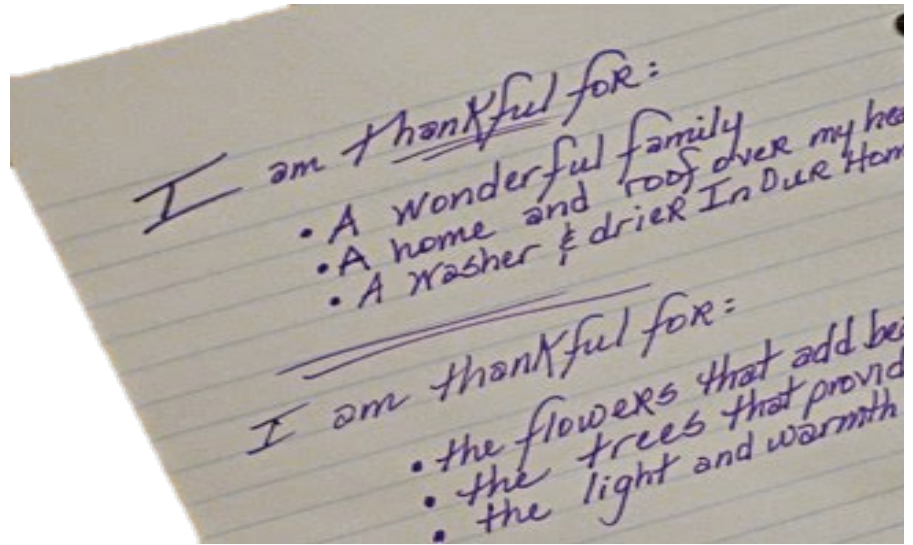 I am thankful for:
• A wonderful family
• A home and roof over my hea
• A washer & drier In Our Hom
I am thankful for:
• the flowers that add bea
• the trees that provid
• the light and warmth